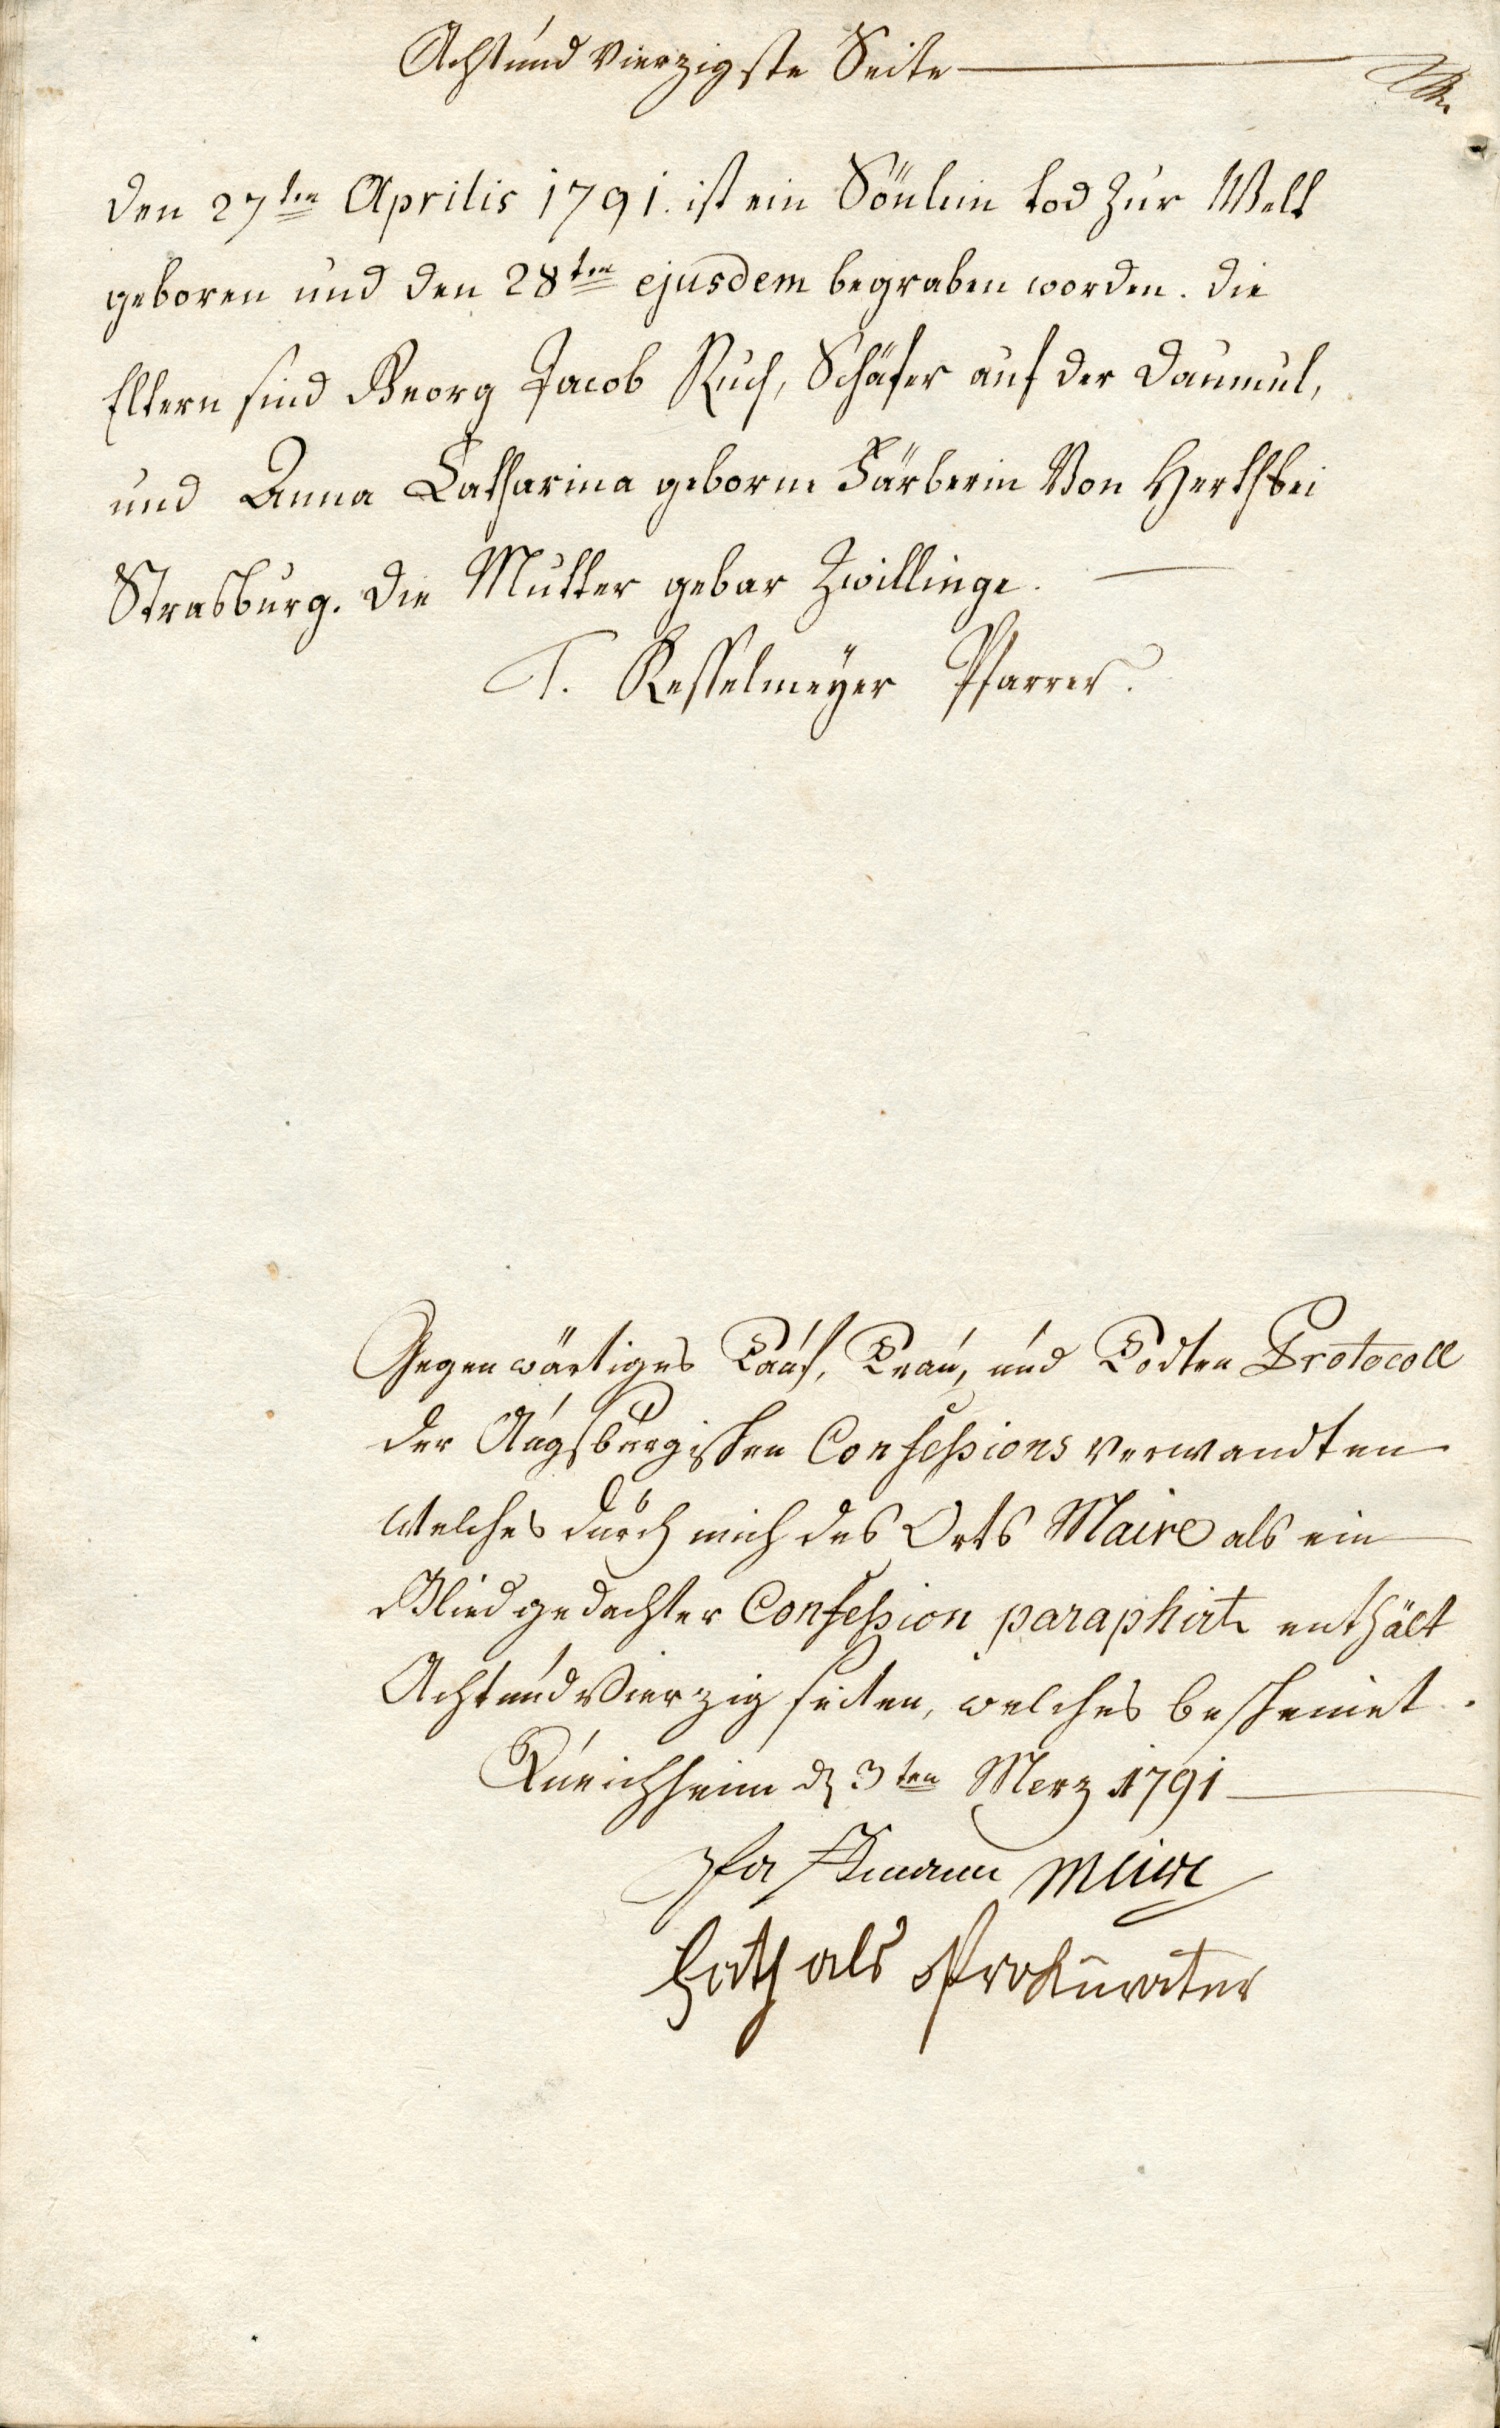 Achtund Vierzigste Seite
den 27ten Aprilis 1791. ist ein Sönlein tod zur Welt
geboren und den 28ten ejusdem begraben worden. die
Eltern sind Georg Jacob Ruch, Schäfer auf der Daumül,
und Anna Catharina geborne Färberin Von Herth bei
Strasburg. die Mutter gebar Zwillinge.
T. Kesselmeÿer Pfarrer.
Gegenwärtiges Tauf, Trau, und Todten Protocoll
der Augsburgischen Confessions verwandten
welches durch mich des Orts Maire als ein
Glied gedachter Confession paraphirt enthält
Achtund Vierzig seiten, welches bescheinet.
den 3ten Merz 1791
Maire
als Prokurater